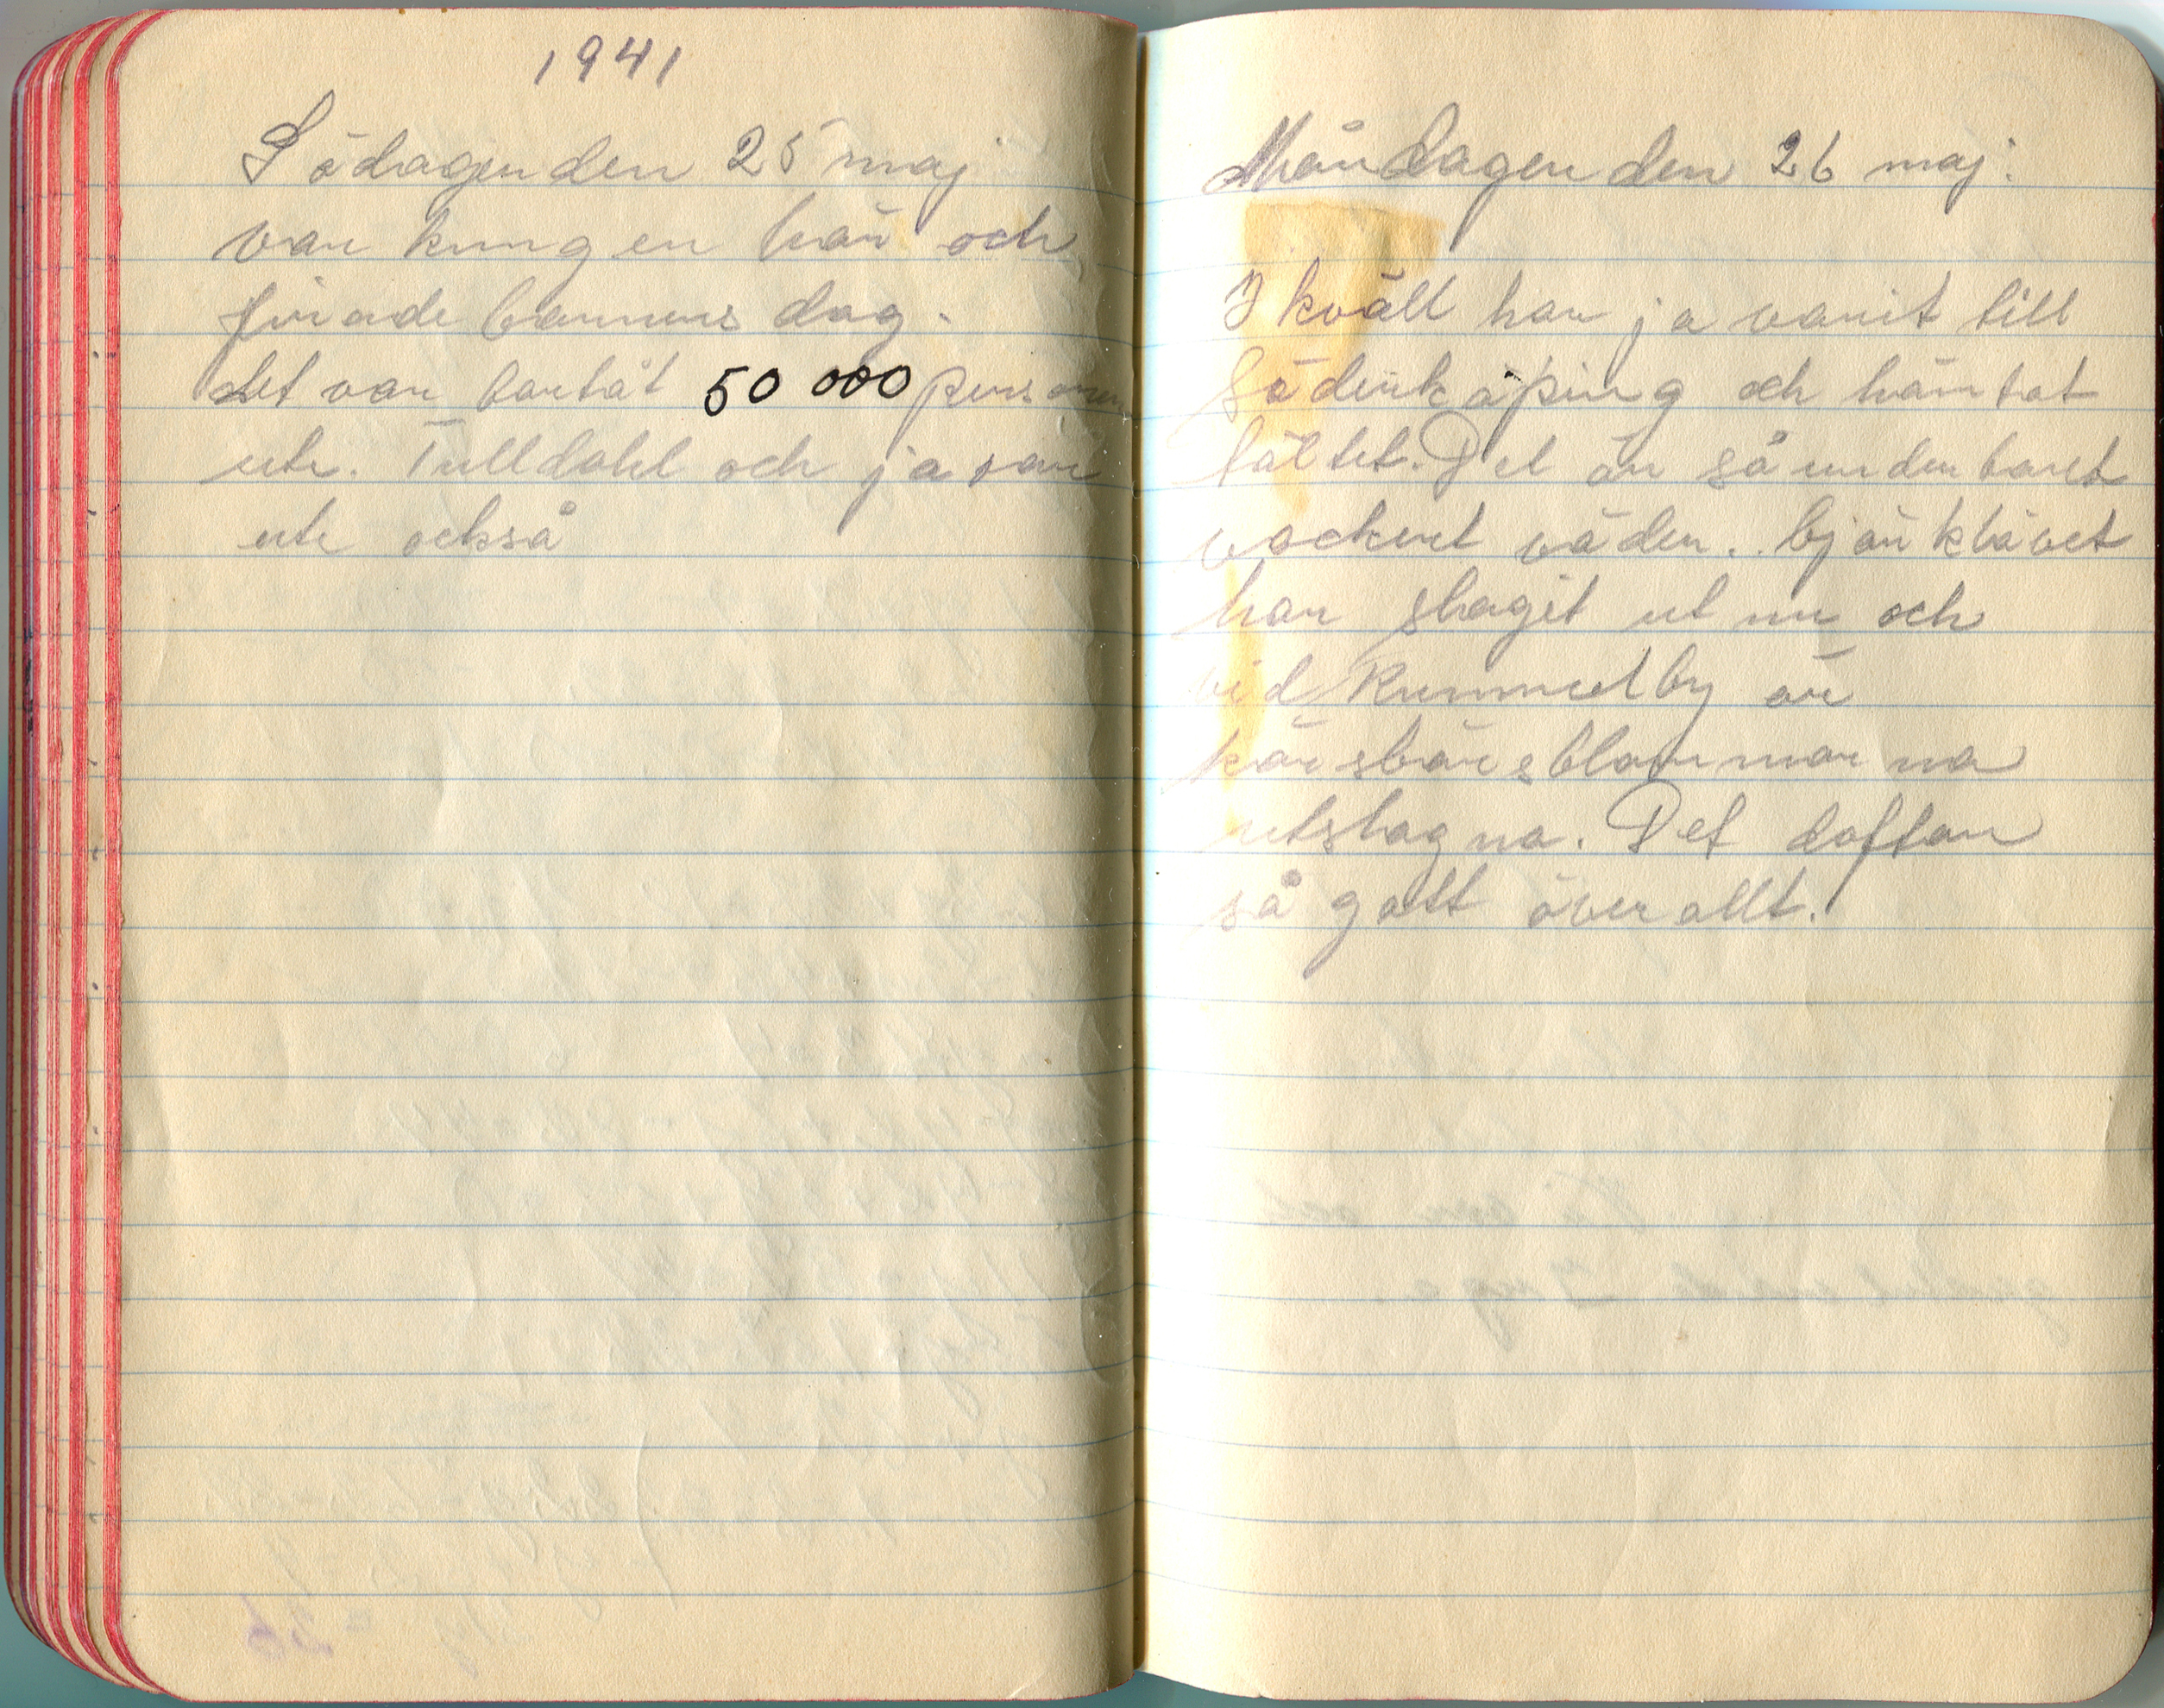 1941
Södagen den 25 maj
var kungen här och
firade barnens dag.
det var bortåt 50 000 personer
ute. Tulldahl och ja var
ute också
Måndagen den 26 maj.
I kväll har ja varit till
Söderköping och hämtat
tältet. Det är så underbart
vackert väder. björklövet
har slagit ut nu och
vid Kummelby är
körsbärsblommorna
utslagna. Det doftar
så gott överallt.